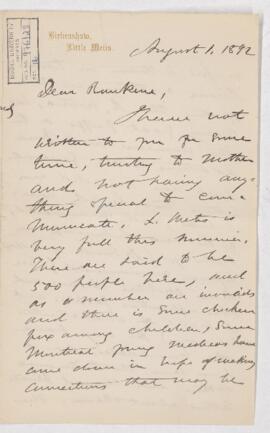 Birkenshaw,
Little Metis.
August 1. 1892
Dear Rankine,
I have not
written to you for some
time, trusting to Mother
and not having any-
thing special to com-
municate. L. Metis is
very full this summer.
There are said to be
500 people here, and
as a number are invalids
and there is some chicken
pox among children, some
Montreal young doctors have
come down in hope of making
connections that may be